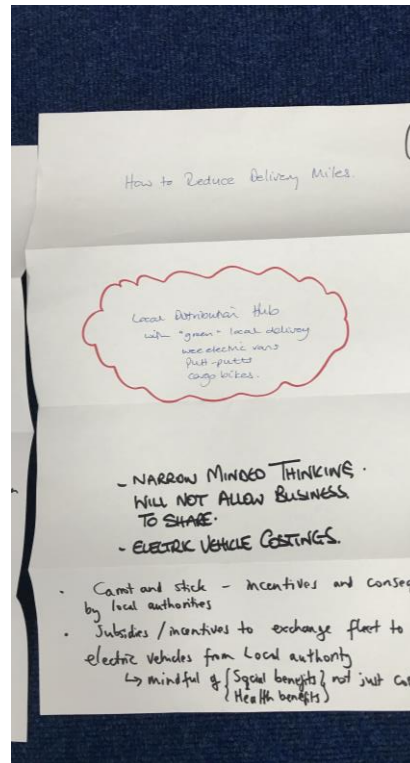 How to Reduce Delivery Miles.
Local Distribution Hub
with "green" local delivery
wee electric vans
putt-putts
cargo bikes.
- NARROW MINDED THINKING.
WILL NOT ALLOW BUSINESS
TO SHARE.
- ELECTRIC VEHICLE COSTINGS.
• Carrot and stick – incentives and conseq
by local authorities
• Subsidies / incentives to exchange fleet to
electric vehicles from Local authority
↳ mindful of { Social benefits } not just cos
{ Health benefits }